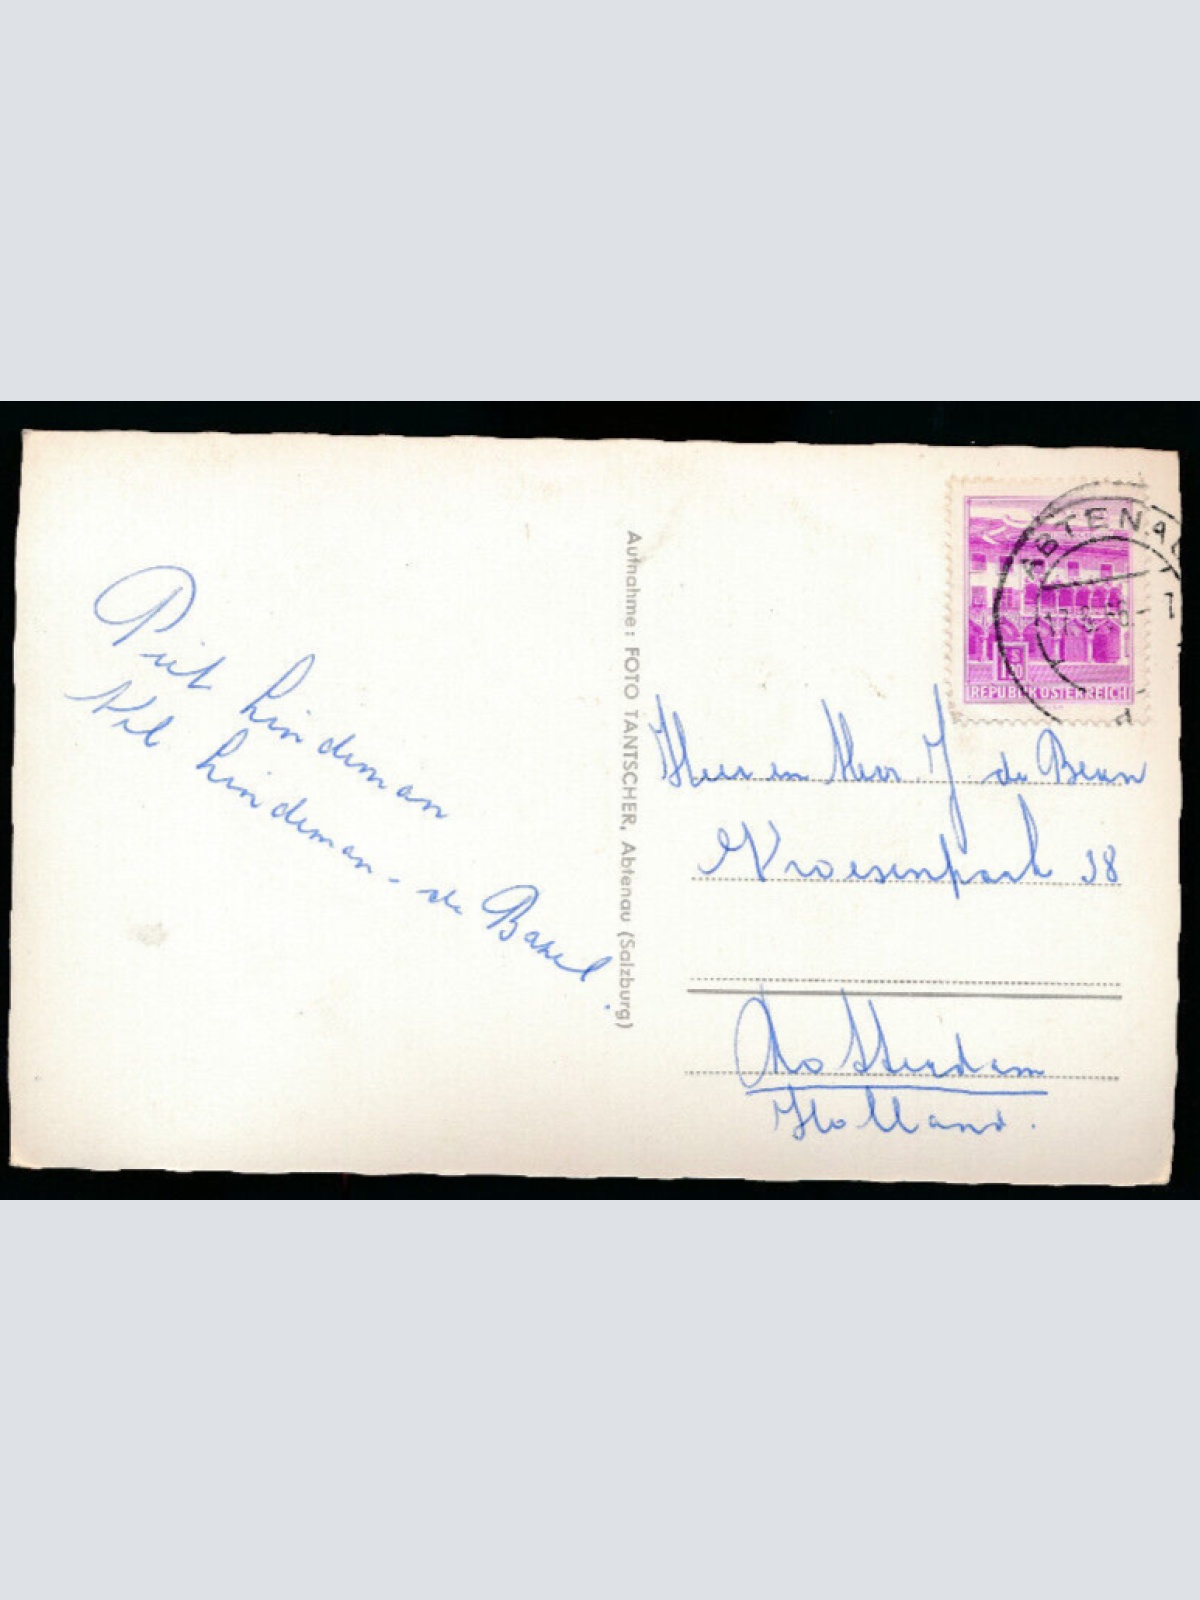 Piet Lindeman
Nel Lindeman - de Bazel.
Aufnahme: FOTO TANTSCHER, Abtenau (Salzburg)
ABTENAU
REPUBLIK ÖSTERREICH
S
1.50
Heer en Mevr. J de Beun
Vroesenpark 38
Rotterdam
Holland.